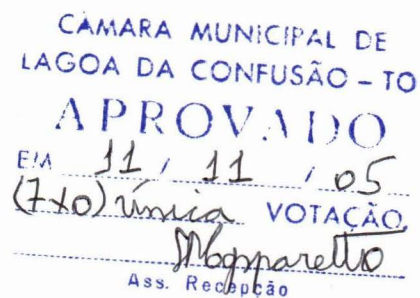 CÂMARA MUNICIPAL DE
LAGOA DA CONFUSÃO – TO
APROVADO
EM 11 / 11 / 05
(7x0) única VOTAÇÃO
Ass. Recepção